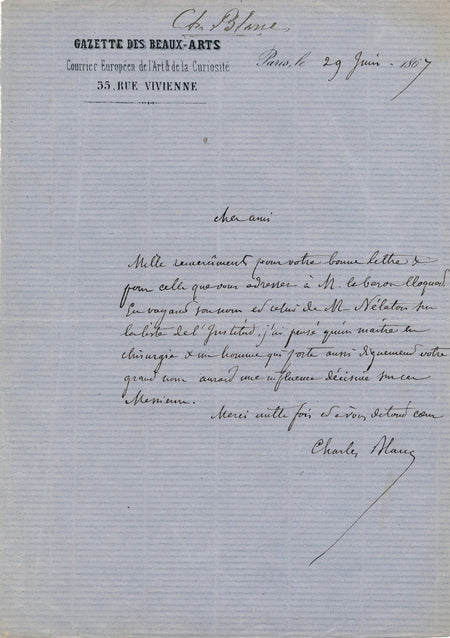 Ch. Blanc
GAZETTE DES BEAUX-ARTS
Courrier Européen de l'Art & de la Curiosité
55, RUE VIVIENNE
Paris, le 29 Juin 1867
cher ami
Mille remerciments pour votre bonne lettre &
pour celle que vous adressez à M. le baron Cloquet
En voyant son nom et celui de M. Nélaton sur
la liste de l'Institut, j'ai pensé qu'un maître en
chirurgie & un homme qui porte aussi dignement votre
grand nom aurait une influence décisive sur ces
Messieurs.
Merci mille fois et à vous de tout cœur
Charles Blanc